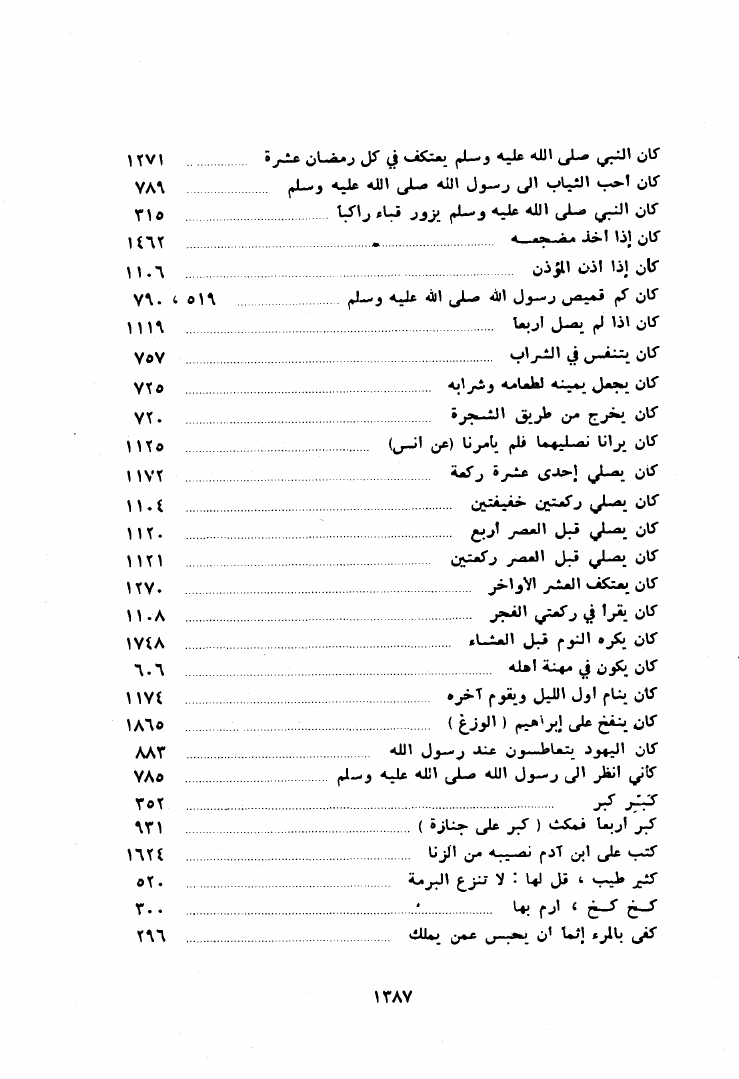 كان النبي صلى الله عليه وسلم يعتكف في كل رمضان عشرة ................ ١٢٧١
كان أحب الثياب الى رسول الله صلى الله عليه وسلم ................ ٧٨٩
كان النبي صلى الله عليه وسلم يزور قباء راكبا ................ ٣١٥
كان إذا أخذ مضجعه ................ ١٤٦٢
كان إذا اذن المؤذن ................ ١١٠٦
كان كم قميص رسول الله صلى الله عليه وسلم ................ ٥١٩ ، ٧٩٠
كان اذا لم يصل أربعا ................ ١١١٩
كان يتنفس في الشراب ................ ٧٥٧
كان يجعل يمينه لطعامه وشرابه ................ ٧٢٥
كان يخرج من طريق الشجرة ................ ٧٢٠
كان يرانا نصليهما فلم يأمرنا (عن انس) ................ ١١٢٥
كان يصلي إحدى عشرة ركعة ................ ١١٧٢
كان يصلي ركعتين خفيفتين ................ ١١٠٤
كان يصلي قبل العصر أربع ................ ١١٢٠
كان يصلي قبل العصر ركعتين ................ ١١٢١
كان يعتكف العشر الأواخر ................ ١٢٧٠
كان يقرأ في ركعتي الفجر ................ ١١٠٨
كان يكره النوم قبل العشاء ................ ١٧٤٨
كان يكون في مهنة أهله ................ ٦٠٦
كان ينام أول الليل ويقوم آخره ................ ١١٧٤
كان ينفخ على إبراهيم ( الوزغ ) ................ ١٨٦٥
كان اليهود يتعاطسون عند رسول الله ................ ٨٨٣
كأني انظر الى رسول الله صلى الله عليه وسلم ................ ٧٨٥
كَبِّر كبر ................ ٣٥٢
كبر أربعا فمكث ( كبر على جنازة ) ................ ٩٣١
كتب على ابن آدم نصيبه من الزنا ................ ١٦٢٤
كثير طيب ، قل لها : لا تنزع البرمة ................ ٥٢٠
كخ كخ ، ارم بها ................ ٣٠٠
كفى بالمرء إثماً ان يحبس عمن يملك ................ ٢٩٦
١٣٨٧